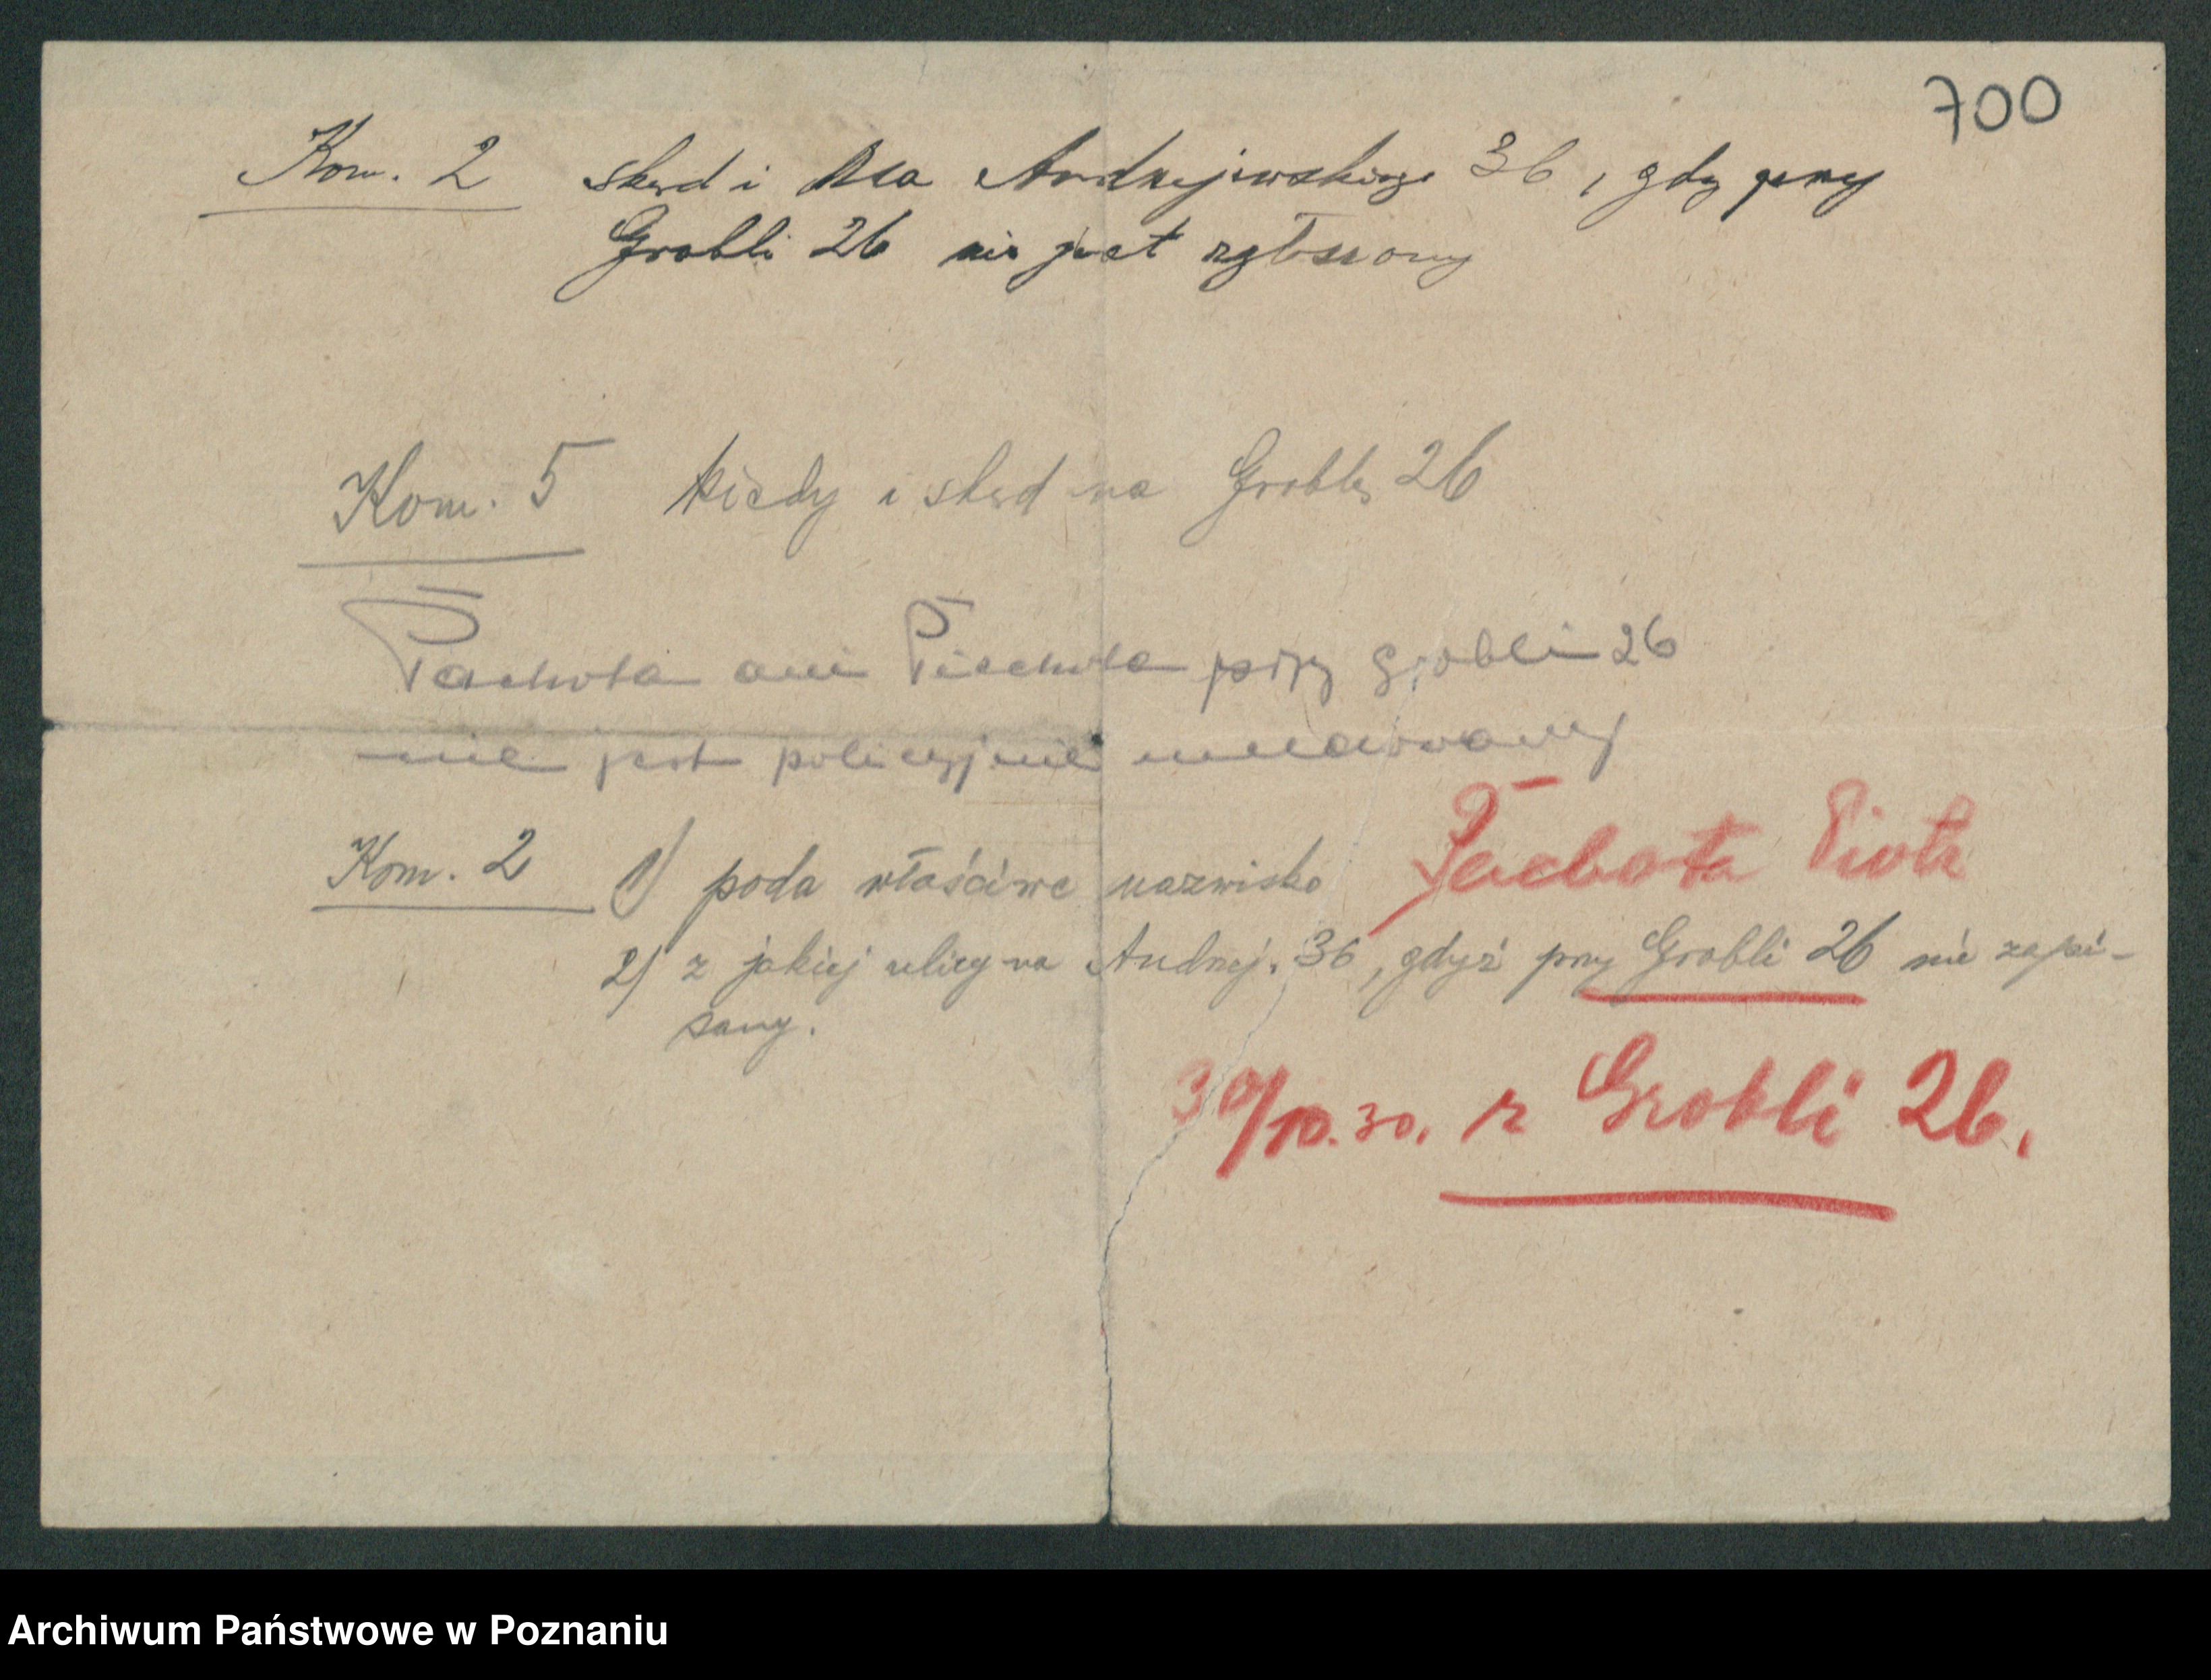 700
Kom. 2 skąd i na Andrzejewskiego 36, gdy przy
Grobli 26 nie jest zgłoszony
Kom. 5 kiedy i skąd na Groblę 26
Pachota ani Piechota przy Grobli 26
nie jest policyjnie meldowany
Kom. 2 1) poda właściwe nazwisko Pachota Piotr
2) z jakiej ulicy na Andrzej. 36, gdyż przy Grobli 26 nie zapi-
sany.
30/10.30. z Grobli 26.
Archiwum Państwowe w Poznaniu